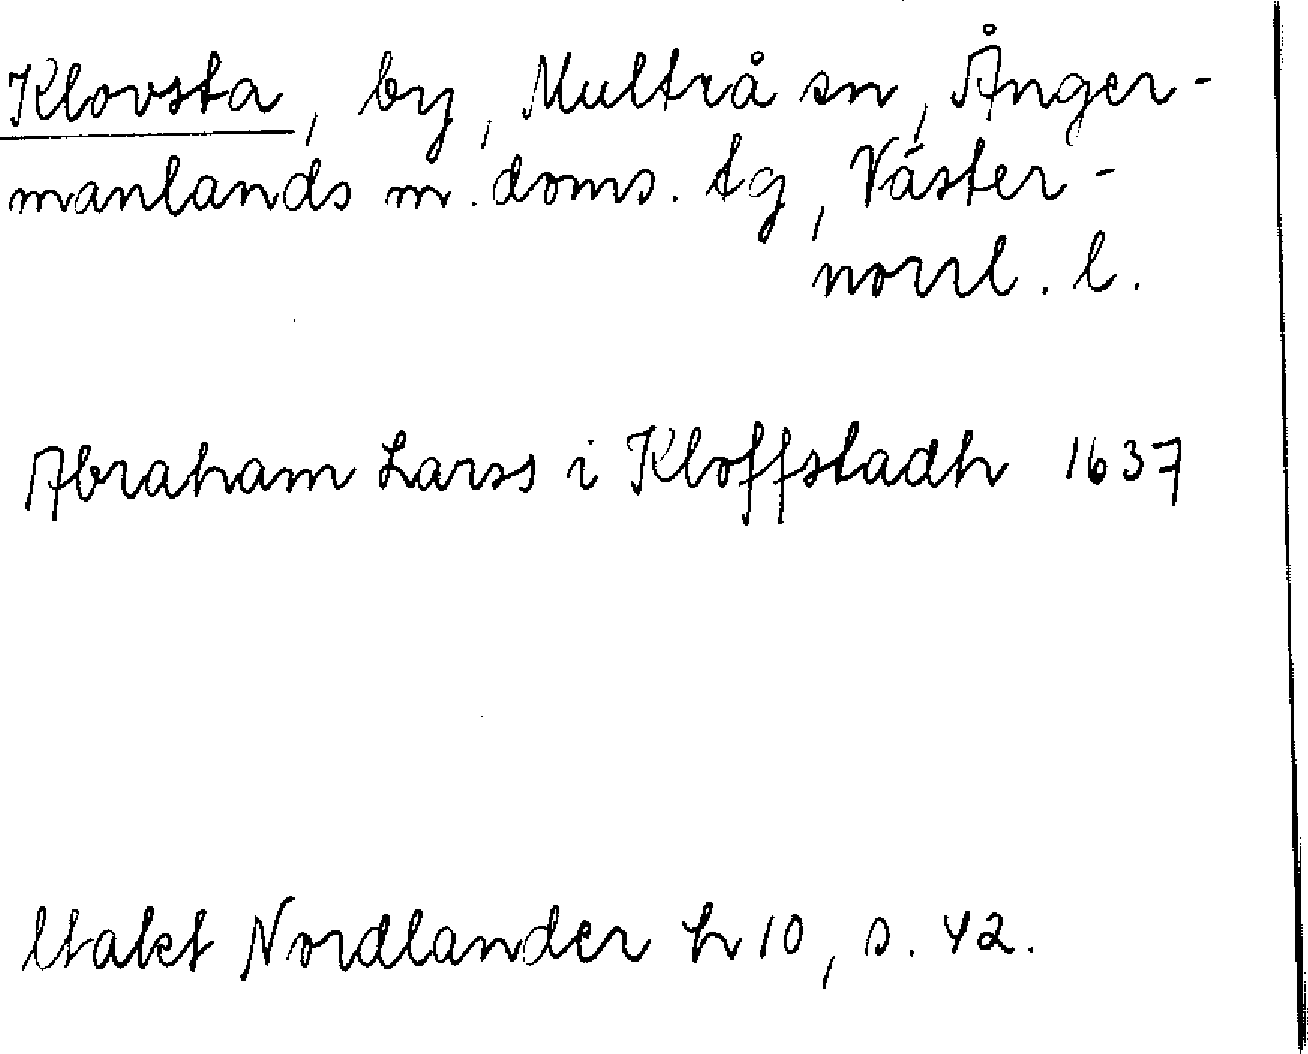 Klovsta, by, Multrå sn, Ånger-
manlands m. doms. tg, Väster-
norrl. l.
Abraham Larss i Kloffstadh 1637
Utakt Nordlander h 10, s. 42.